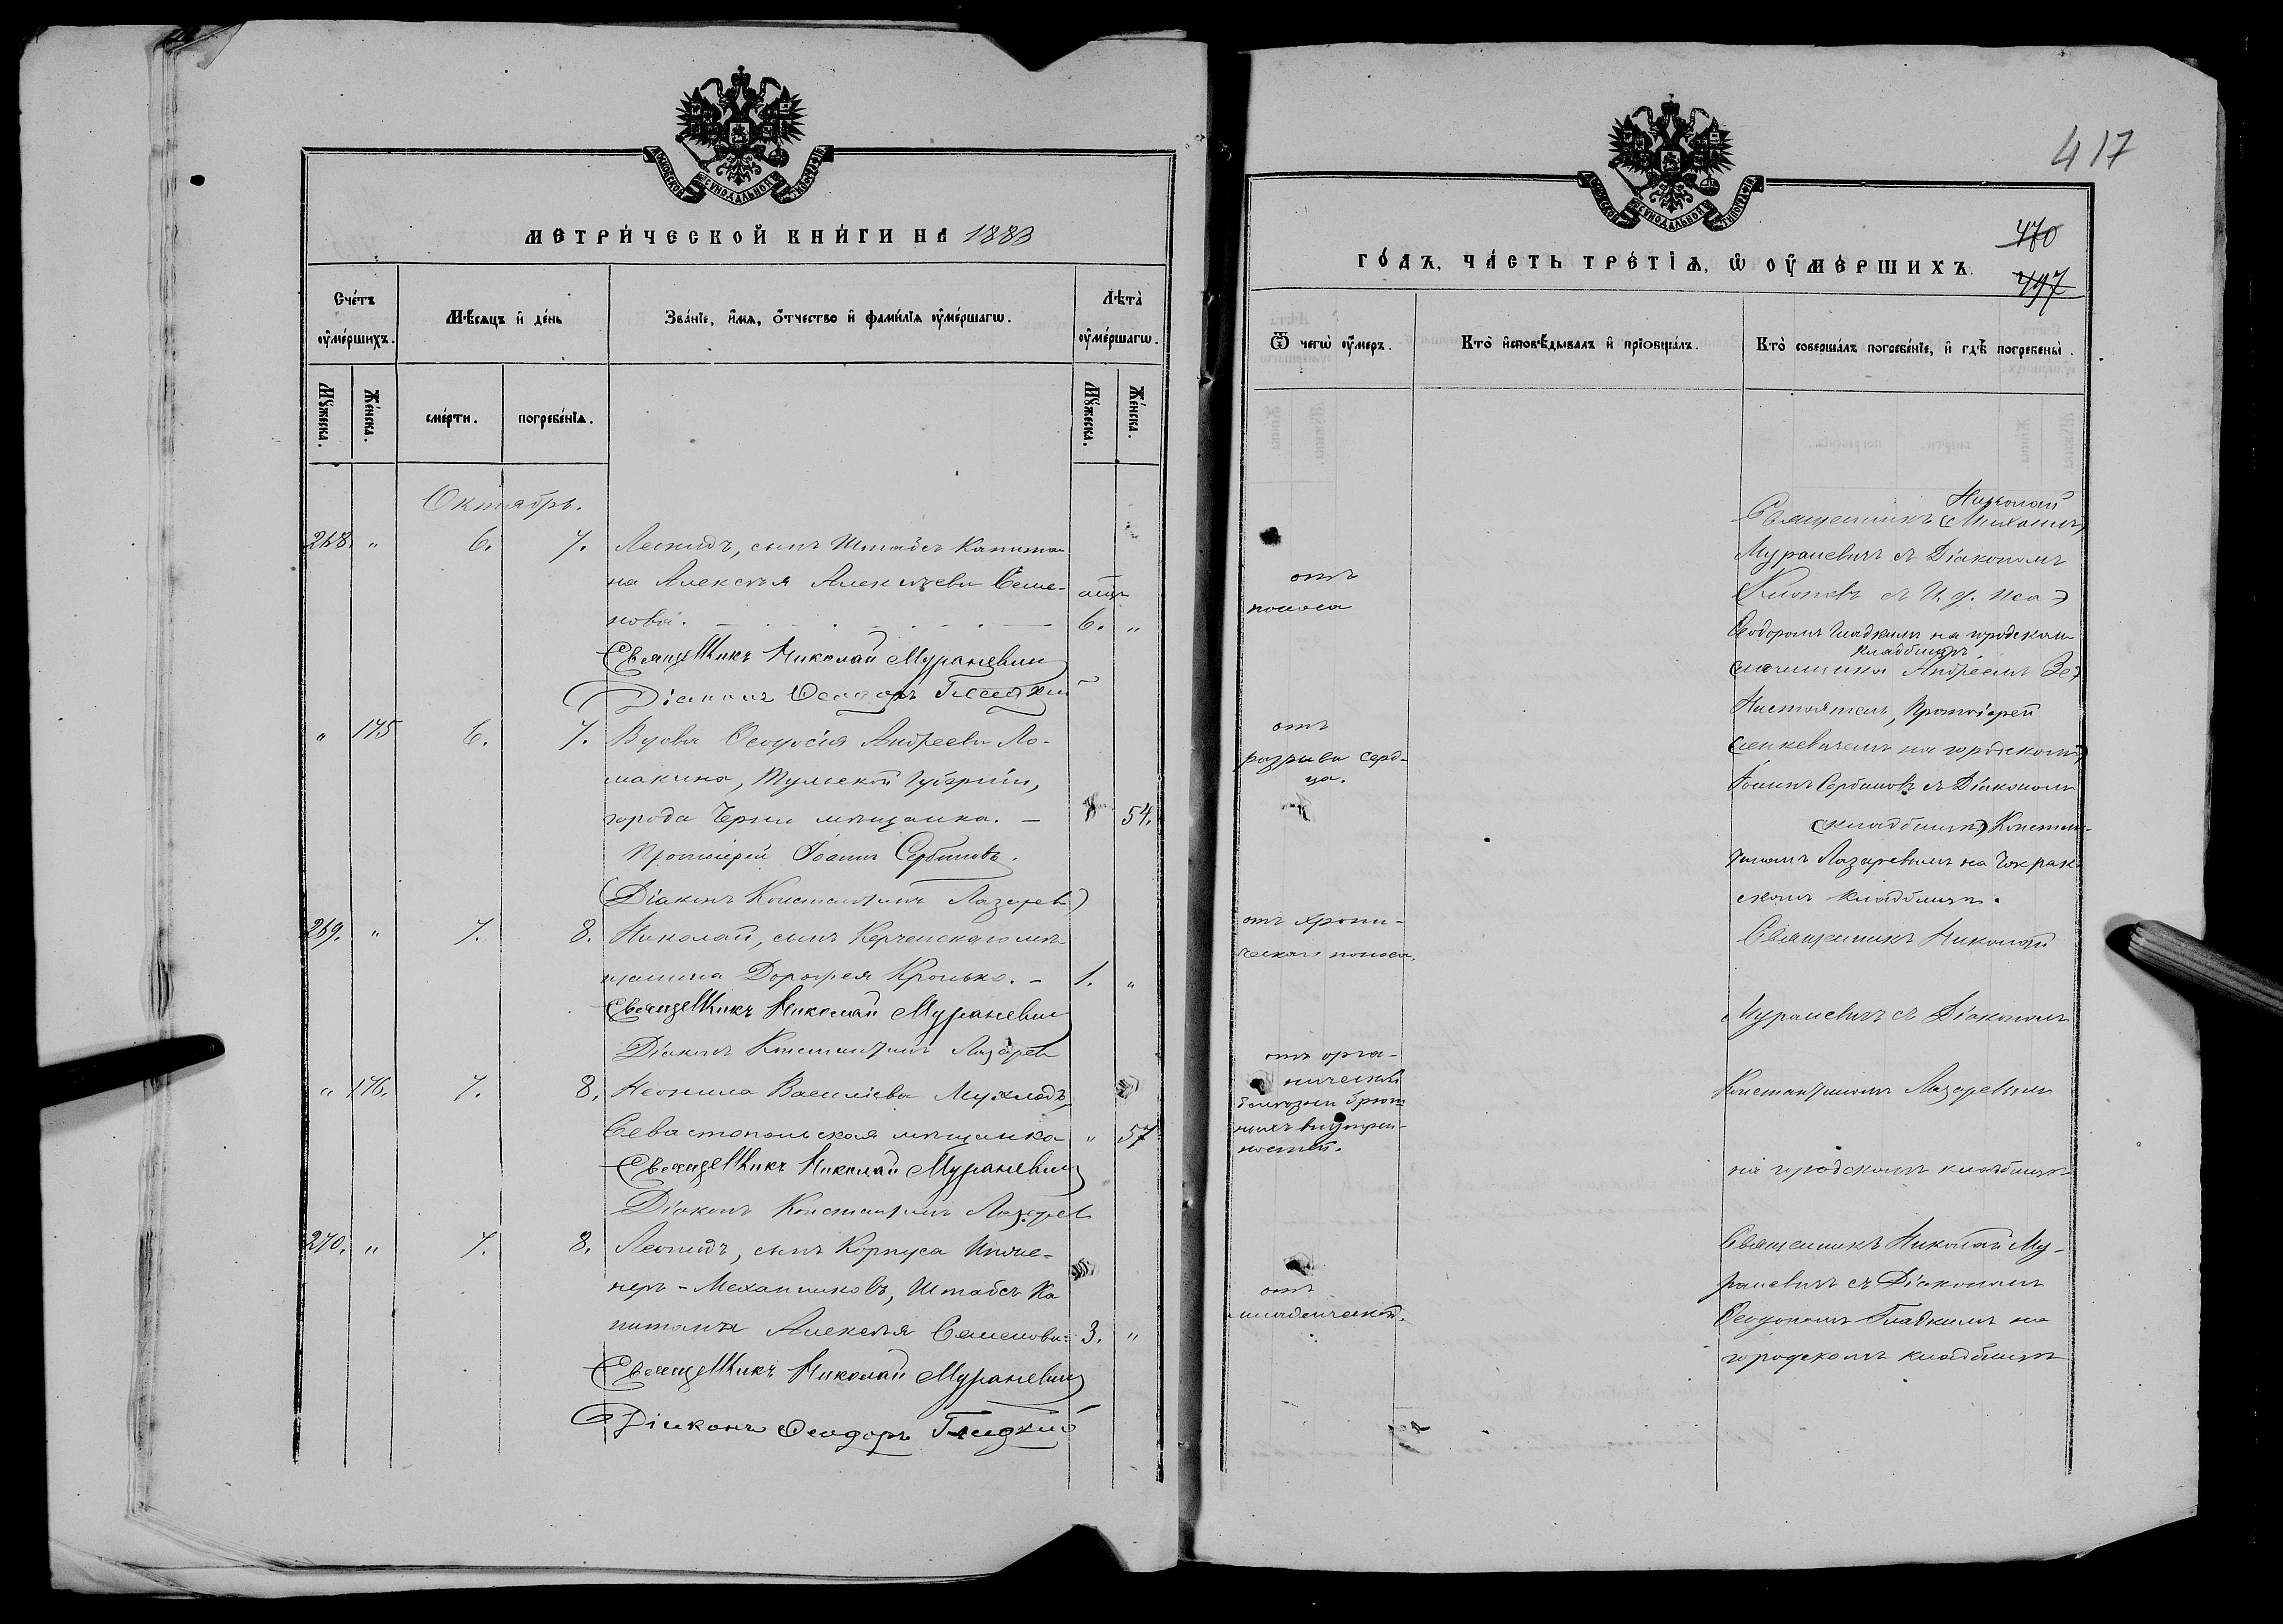 МОСКОВСКОЙ СѴНОДАЛЬНОЙ ТИПОГРАФІИ
МЕТРИ́ЧЕСКОЙ КНИ́ГИ НА 1883
Сче́тъ оу҆ме́ршихъ.
Мѣ́сяцъ и҆ де́нь
Зва́нїе, и҆́мя, ѻ҆́тчество и҆ фами́лїя оу҆ме́ршагѡ.
Лѣта̀ оу҆ме́ршагѡ.
Мꙋ́жеска.
Же́нска.
сме́рти.
погребе́нїя.
Мꙋ́жеска.
Же́нска.
Октябрь.
268. " 6. 7. Леонидъ, сынъ Штабсъ Капита-
на Алексѣя Алексѣева Семе-
нова. 6. "
Священникъ Николай Мураневич
Діаконъ Ѳеодоръ Гладкий
" 175 6. 7. Вдова Ѳеодосія Андреева Ло-
макина, Тульской Губерніи,
города Черни мѣщанка. — 54.
Протоіерей Іоаннъ Сербиновъ.
(Діаконъ Константинъ Лазарев)
269. " 7. 8. Николай, сынъ Керченскаго мѣ-
щанина Дорофея Кронько. — 1. "
Священникъ Николай Мураневич
Діаконъ Константинъ Лазарев
" 176. 7. 8. Неонила Василіева
Севастопольская мѣщанка " 57
Священникъ Николай Мураневич
Діаконъ Константинъ Лазарев
270. " 7. 8. Леонидъ, сынъ Корпуса Инже-
неръ-Механиковъ, Штабсъ Ка
питана Алексѣя Семенова. 3. "
Священникъ Николай Мураневич
Діаконъ Ѳеодоръ Гладкий
417
МОСКОВСКОЙ СѴНОДАЛЬНОЙ ТИПОГРАФІИ
470
497
ГО́ДЪ, ЧА́СТЬ ТРЕ́ТЇѦ, Ѡ҆ ОУ҆МЕ́РШИХЪ.
Ѿ чегѡ̀ оу҆́меръ.
Кто̀ и҆сповѣ́дывалъ и҆ прїобща́лъ.
Кто̀ соверша́лъ погребе́нїе, и҆ гдѣ̀ погребены̀.
отъ
поноса
Николай
Священникъ (Михаилъ)
Мураневичъ съ Діакономъ
Ѳеодоромъ Гладкимъ на городском
кладбищѣ.
отъ
разрыва серд-
ца.
Настоятель, Протоіерей
на городскомъ)
Іоаннъ Сербиновъ съ Діакономъ
(кладбищѣ) Констан-
тиномъ Лазаревымъ на
скомъ кладбищѣ.
отъ хрони-
ческаго поноса.
Священникъ Николай
Мураневичъ съ Діакономъ
отъ орга-
нической
болѣзни брюш-
ныхъ внутрен-
ностей.
Константиномъ Лазаревымъ
на городскомъ кладбищѣ
отъ
младенческой.
Священникъ Николай Му-
раневичъ съ Діакономъ
Ѳеодоромъ Гладкимъ на
городскомъ кладбищѣ